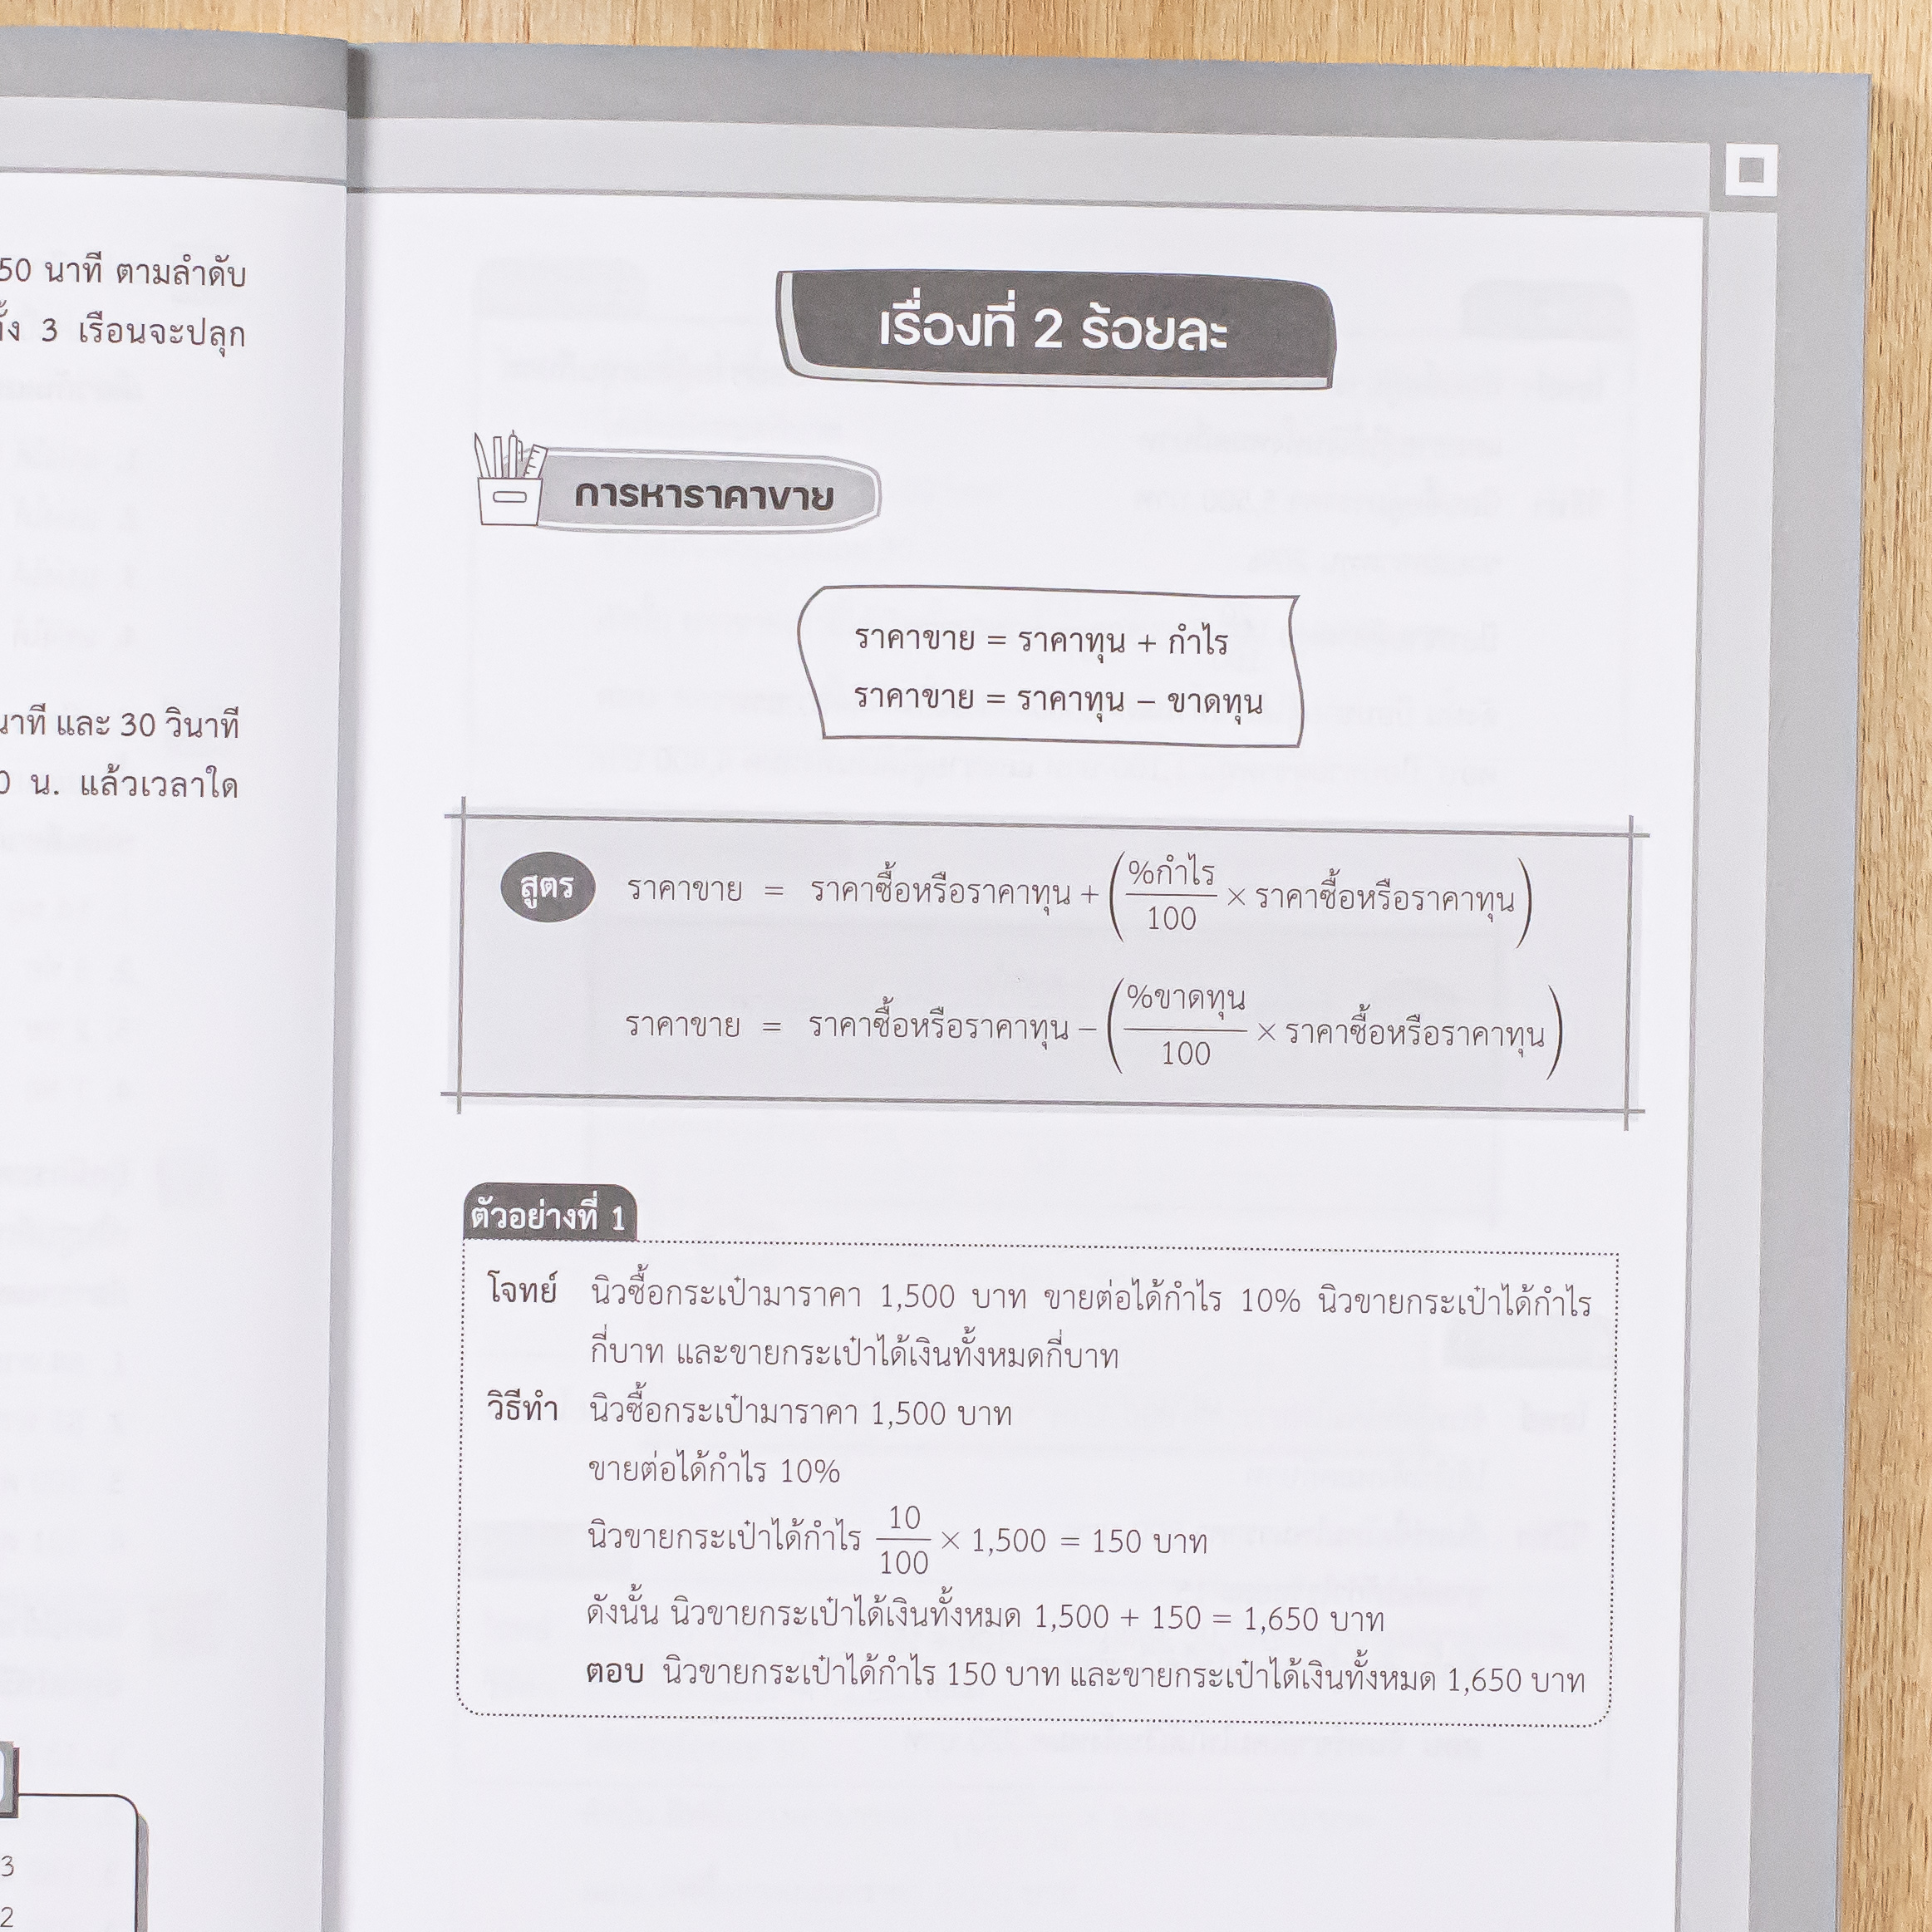 50 นาที ตามลำดับ
3 เรือนจะปลุก
และ 30 วินาที
น. แล้วเวลาใด
3
2
เรื่องที่ 2 ร้อยละ
การหาราคาขาย
ราคาขาย = ราคาทุน + กำไร
ราคาขาย = ราคาทุน – ขาดทุน
สูตร ราคาขาย = ราคาซื้อหรือราคาทุน + (%กำไร/100 × ราคาซื้อหรือราคาทุน)
ราคาขาย = ราคาซื้อหรือราคาทุน – (%ขาดทุน/100 × ราคาซื้อหรือราคาทุน)
ตัวอย่างที่ 1
โจทย์ นิวซื้อกระเป๋ามาราคา 1,500 บาท ขายต่อได้กำไร 10% นิวขายกระเป๋าได้กำไร
กี่บาท และขายกระเป๋าได้เงินทั้งหมดกี่บาท
วิธีทำ นิวซื้อกระเป๋ามาราคา 1,500 บาท
ขายต่อได้กำไร 10%
นิวขายกระเป๋าได้กำไร 10/100 × 1,500 = 150 บาท
ดังนั้น นิวขายกระเป๋าได้เงินทั้งหมด 1,500 + 150 = 1,650 บาท
ตอบ นิวขายกระเป๋าได้กำไร 150 บาท และขายกระเป๋าได้เงินทั้งหมด 1,650 บาท